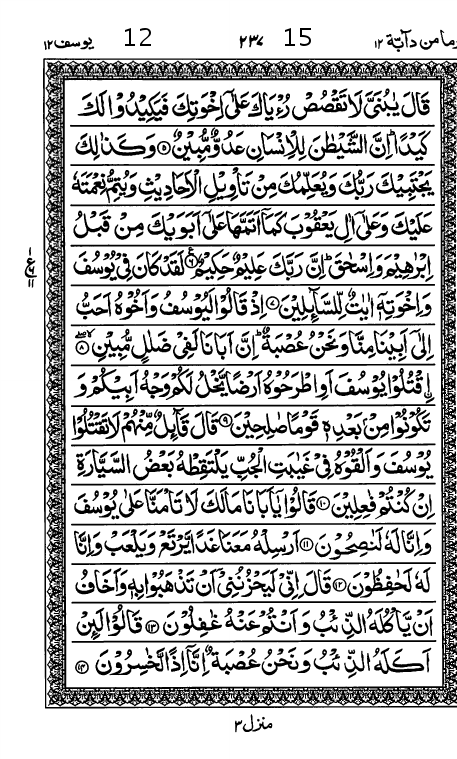 ومامن دآبة ١٢ 15 ٢٣٧ 12 يوسف ١٢
قَالَ يٰبُنَىَّ لَا تَقْصُصْ رُءْيَاكَ عَلٰٓى اِخْوَتِكَ فَيَكِيْدُوْا لَكَ
كَيْدًا ؕ اِنَّ الشَّيْطٰنَ لِلْاِنْسَانِ عَدُوٌّ مُّبِيْنٌ ۝۵ وَكَذٰلِكَ
يَجْتَبِيْكَ رَبُّكَ وَيُعَلِّمُكَ مِنْ تَاْوِيْلِ الْاَحَادِيْثِ وَيُتِمُّ نِعْمَتَهٗ
عَلَيْكَ وَعَلٰٓى اٰلِ يَعْقُوْبَ كَمَآ اَتَمَّهَا عَلٰٓى اَبَوَيْكَ مِنْ قَبْلُ
اِبْرٰهِيْمَ وَاِسْحٰقَ ؕ اِنَّ رَبَّكَ عَلِيْمٌ حَكِيْمٌ ۝۶ لَقَدْ كَانَ فِىْ يُوْسُفَ
وَاِخْوَتِهٖٓ اٰيٰتٌ لِّلسَّآئِلِيْنَ ۝۷ اِذْ قَالُوْا لَيُوْسُفُ وَاَخُوْهُ اَحَبُّ
اِلٰٓى اَبِيْنَا مِنَّا وَنَحْنُ عُصْبَةٌ ؕ اِنَّ اَبَانَا لَفِىْ ضَلٰلٍ مُّبِيْنِ ۝۸
اِ۟قْتُلُوْا يُوْسُفَ اَوِ اطْرَحُوْهُ اَرْضًا يَّخْلُ لَكُمْ وَجْهُ اَبِيْكُمْ وَ
تَكُوْنُوْا مِنْۢ بَعْدِهٖ قَوْمًا صٰلِحِيْنَ ۝۹ قَالَ قَآئِلٌ مِّنْهُمْ لَا تَقْتُلُوْا
يُوْسُفَ وَاَلْقُوْهُ فِىْ غَيٰبَتِ الْجُبِّ يَلْتَقِطْهُ بَعْضُ السَّيَّارَةِ
اِنْ كُنْتُمْ فٰعِلِيْنَ ۝۱۰ قَالُوْا يٰٓاَبَانَا مَالَكَ لَا تَاْمَنَّا عَلٰى يُوْسُفَ
وَاِنَّا لَهٗ لَنٰصِحُوْنَ ۝۱۱ اَرْسِلْهُ مَعَنَا غَدًا يَّرْتَعْ وَيَلْعَبْ وَاِنَّا
لَهٗ لَحٰفِظُوْنَ ۝۱۲ قَالَ اِنِّىْ لَيَحْزُنُنِىْٓ اَنْ تَذْهَبُوْا بِهٖ وَاَخَافُ
اَنْ يَّاْكُلَهُ الذِّئْبُ وَاَنْتُمْ عَنْهُ غٰفِلُوْنَ ۝۱۳ قَالُوْا لَئِنْ
اَكَلَهُ الذِّئْبُ وَنَحْنُ عُصْبَةٌ اِنَّآ اِذًا لَّخٰسِرُوْنَ ۝۱۴
منزل ٣